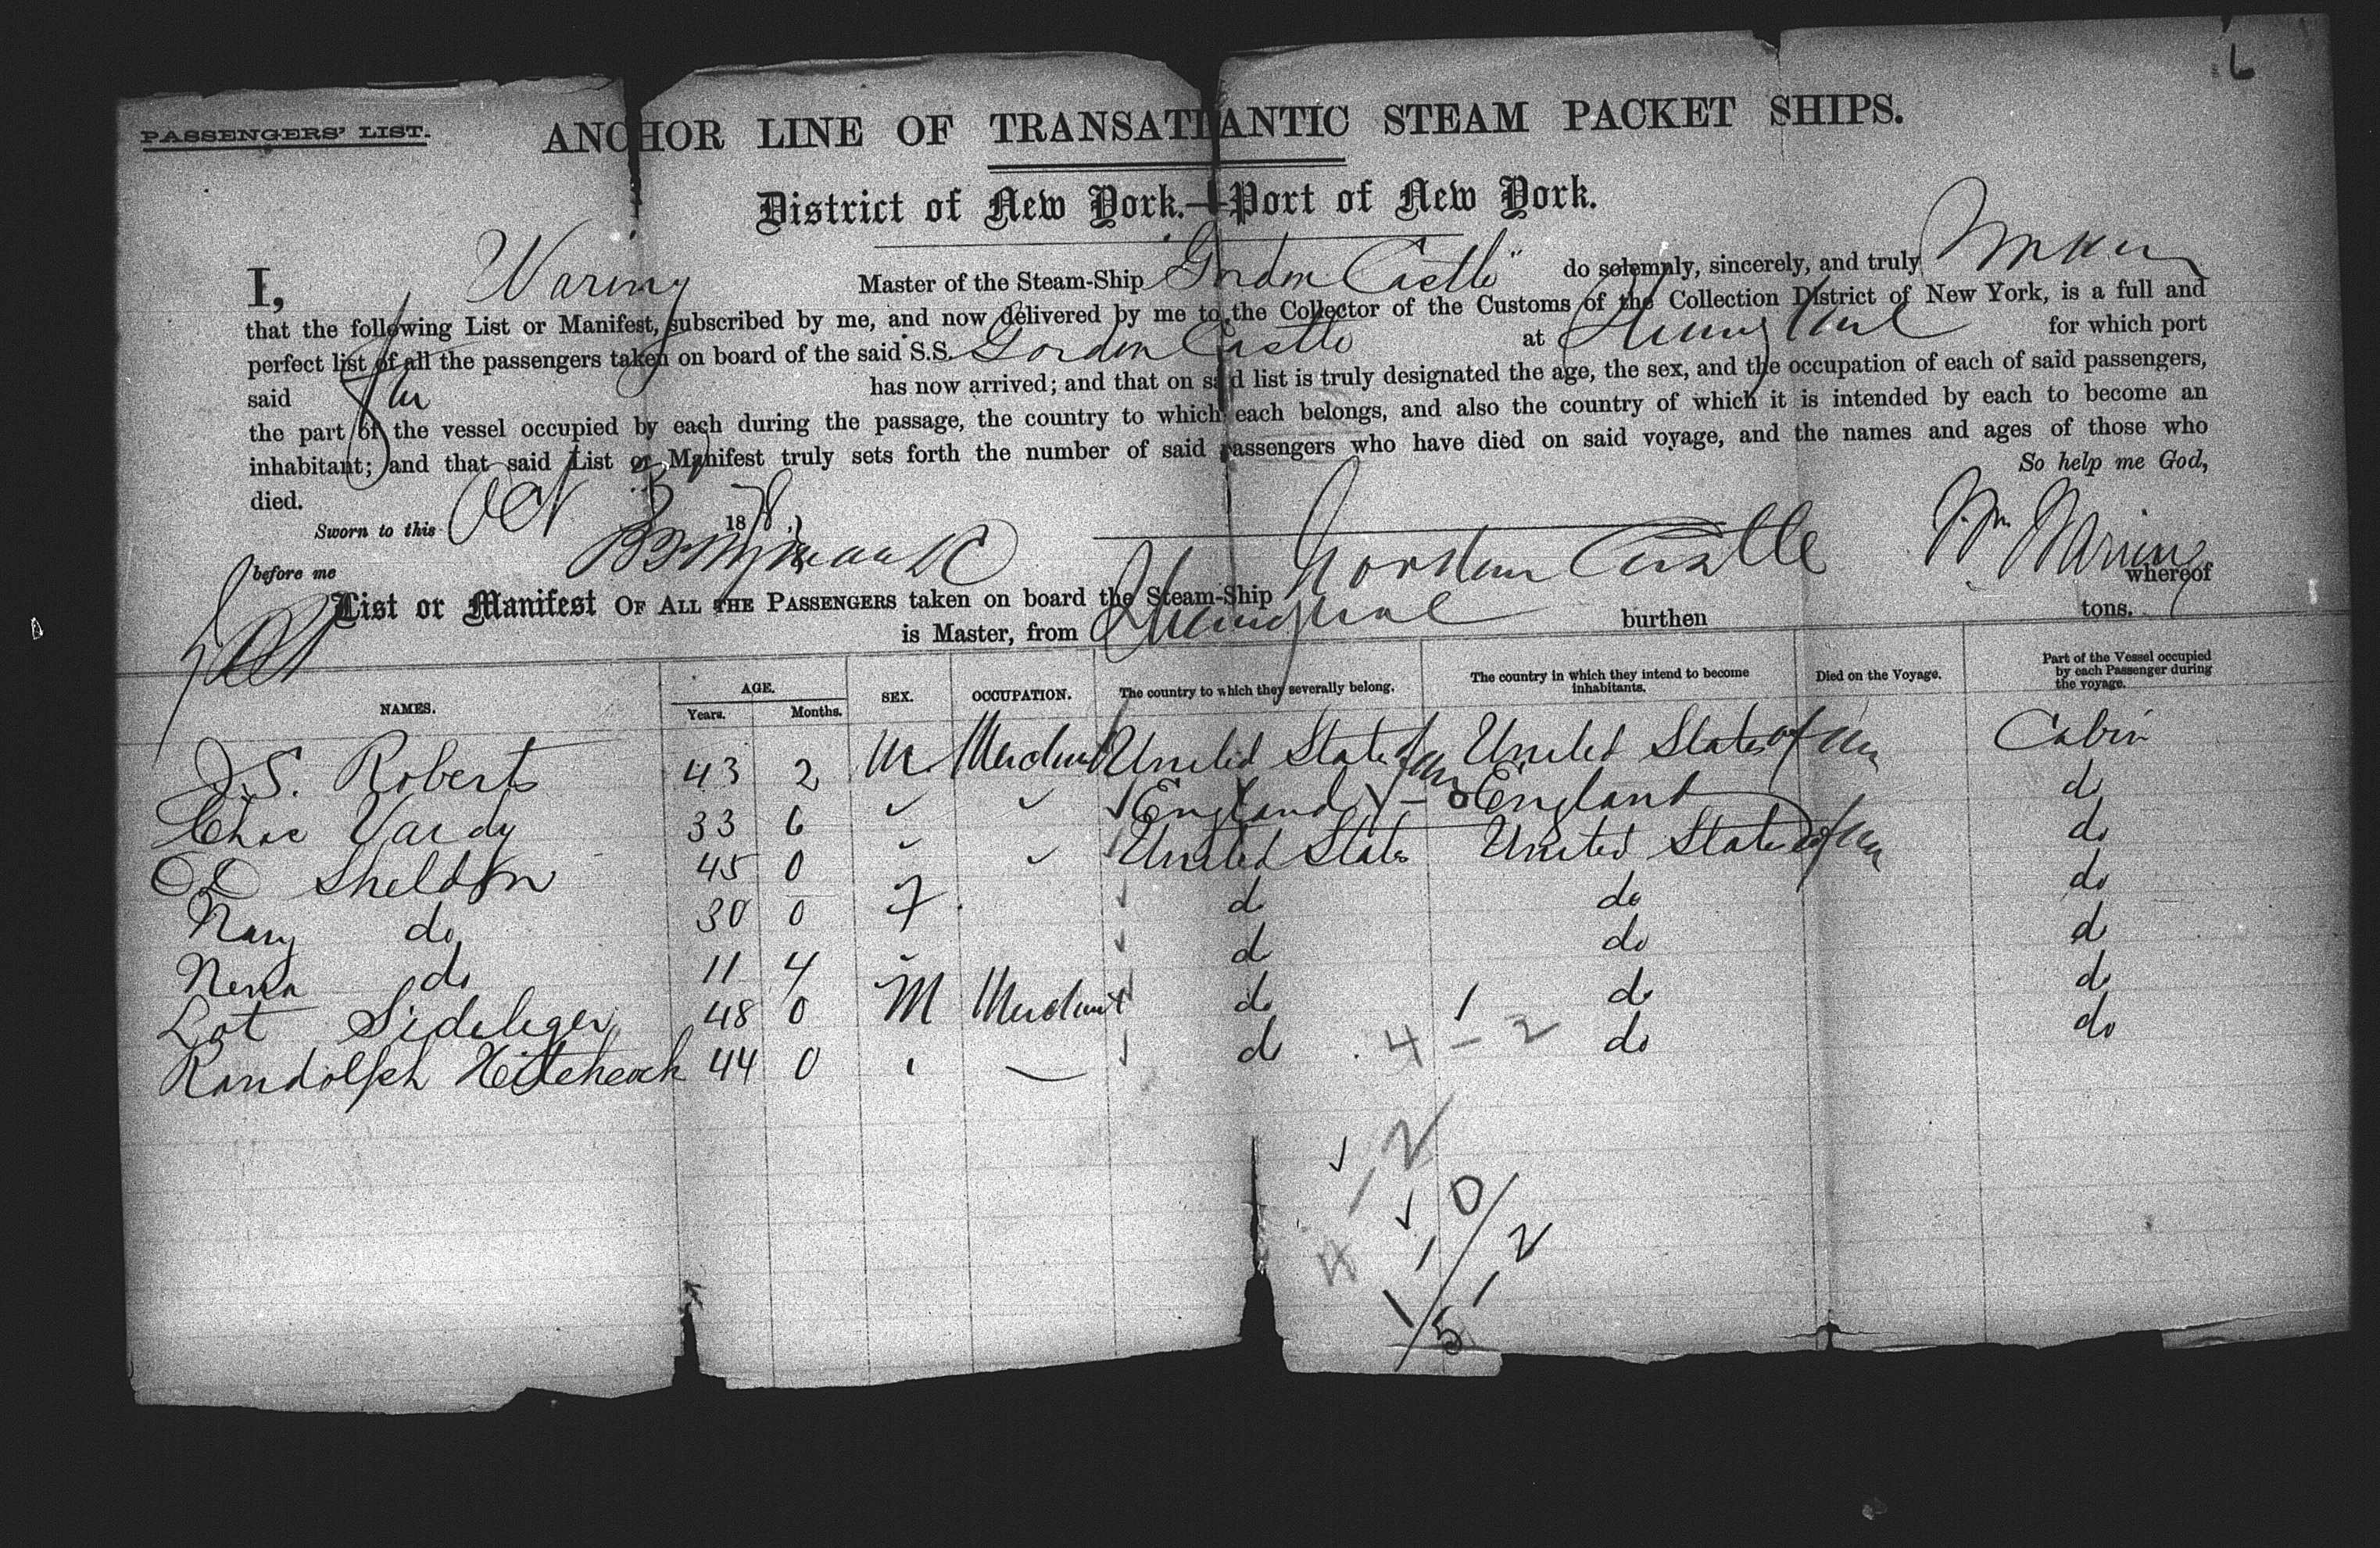 6
PASSENGERS' LIST.
ANCHOR LINE OF TRANSATLANTIC STEAM PACKET SHIPS.
District of New York.—Port of New York.
I, Waring Master of the Steam-Ship Gordon Castle" do solemnly, sincerely, and truly
that the following List or Manifest, subscribed by me, and now delivered by me to the Collector of the Customs of the Collection District of New York, is a full and
perfect list of all the passengers taken on board of the said S.S. Gordon Castle at for which port
said has now arrived; and that on said list is truly designated the age, the sex, and the occupation of each of said passengers,
the part of the vessel occupied by each during the passage, the country to which each belongs, and also the country of which it is intended by each to become an
inhabitant; and that said List or Manifest truly sets forth the number of said passengers who have died on said voyage, and the names and ages of those who
died. So help me God,
Sworn to this Oct 5 1878
before me Wm Waring
List or Manifest OF ALL THE PASSENGERS taken on board the Steam-Ship Gordon Castle whereof
is Master, from Shanghai burthen tons.
NAMES. AGE. Years. Months. SEX. OCCUPATION. The country to which they severally belong. The country in which they intend to become inhabitants. Died on the Voyage. Part of the Vessel occupied by each Passenger during the voyage.
J. S. Roberts 43 2 M. Merchant United States of Am United States of Am Cabin
Chas Vardy 33 6 England England do
Sheldon 45 0 United States United States of Am do
Mary do 30 0 F. do do do
do 11 4 do do do
Lot Sideleger 48 0 M Merchant do do do
Randolph Hitchcock 44 0 do do do
1
4 - 2
2
0
1 2
1 1
5